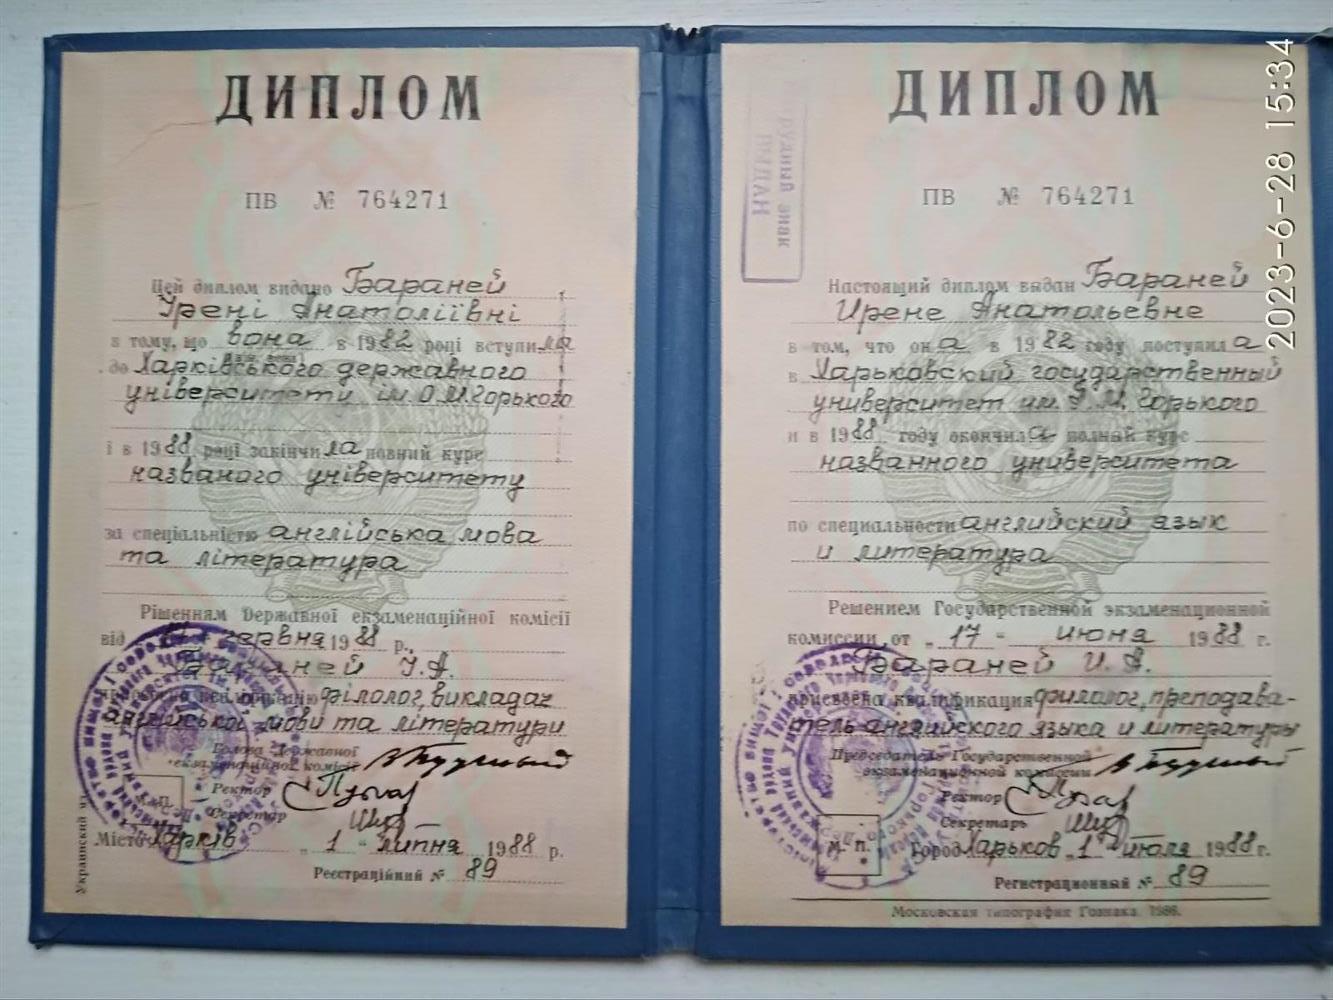 ДИПЛОМ
ПВ № 764271
Цей диплом видано Бараней
Ірені Анатоліївні
в тому, що вона в 1982 році вступила
до Харківського державного
університету ім. О.М.Горького
і в 1988 році закінчила повний курс
названого університету
за спеціальністю англійська мова
та література
Рішенням Державної екзаменаційної комісії
від червня 1988 р.,
Бараней І.А.
філолог, викладач
англійської мови та літератури
Голова Державної
екзаменаційної комісії
Ректор
Секретар
М.П.
Місто Харків „1“ липня 1988 р.
Реєстраційний № 89
Украинский
ДИПЛОМ
ПВ № 764271
Нагрудный знак
ВЫДАН
Настоящий диплом выдан Бараней
Ирене Анатольевне
в том, что она в 1982 году поступила
в Харьковский государственный
университет им. А.М. Горького
и в 1988 году окончила полный курс
названного университета
по специальности английский язык
и литература
Решением Государственной экзаменационной
комиссии от „17“ июня 1988 г.
Бараней И.А.
присвоена квалификация филолог, преподава-
тель английского языка и литературы
Председатель Государственной
экзаменационной комиссии
Ректор
Секретарь
М.П.
Город Харьков „1“ июля 1988 г.
Регистрационный № 89
Московская типография Гознака. 1986.
2023-6-28 15:34